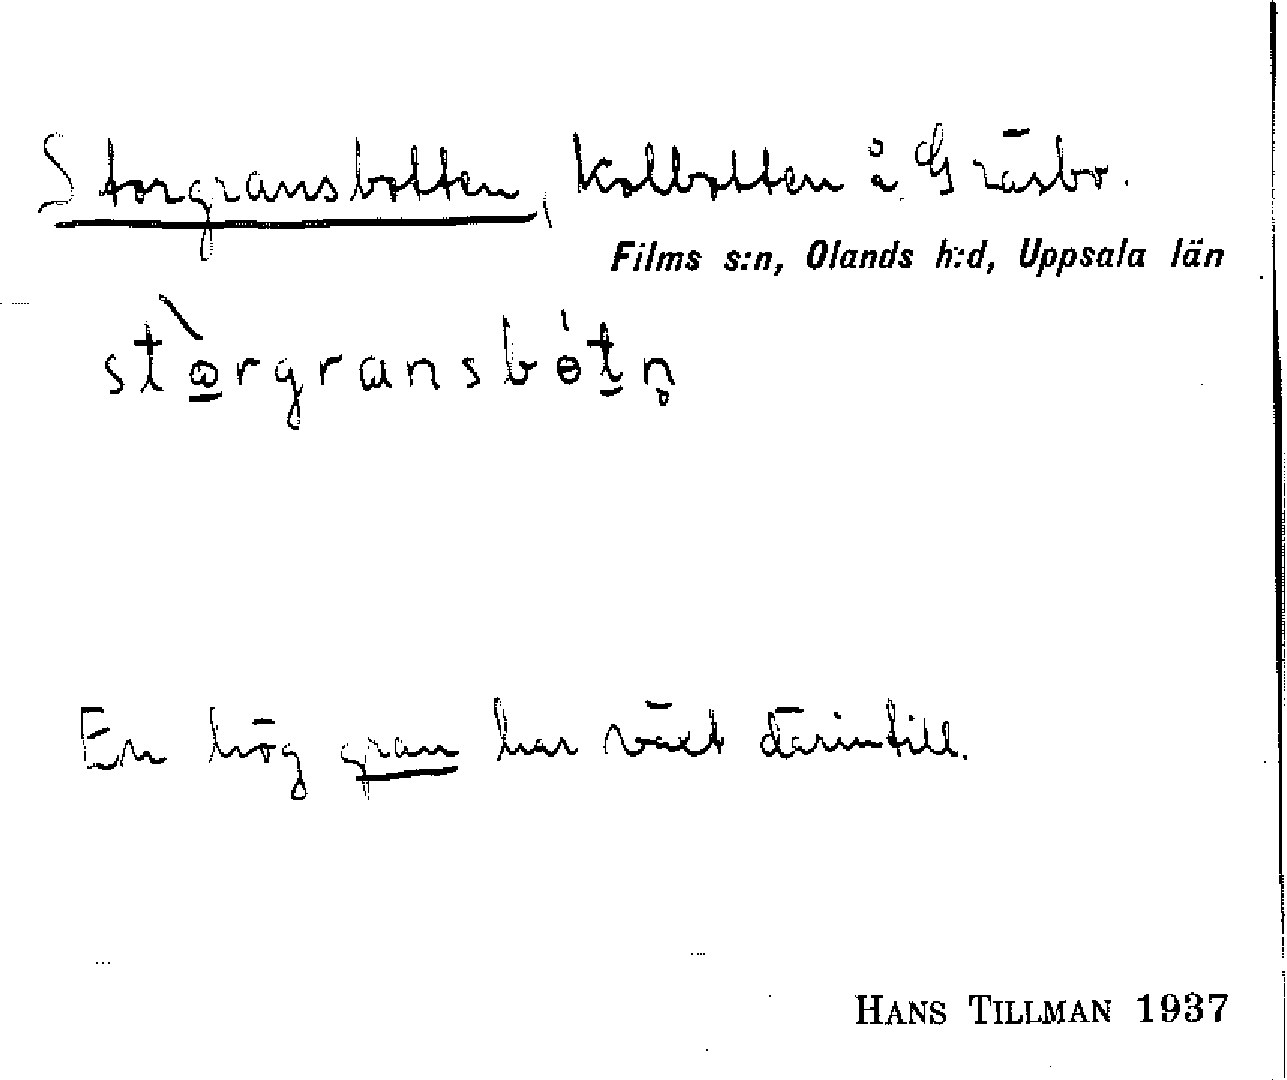 Storgransbotten, kolbotten å Gräsbo.
Films s:n, Olands h:d, Uppsala län
stὼ̲rgransbɵ́t̲n̥
En hög gran har växt därintill.
HANS TILLMAN 1937